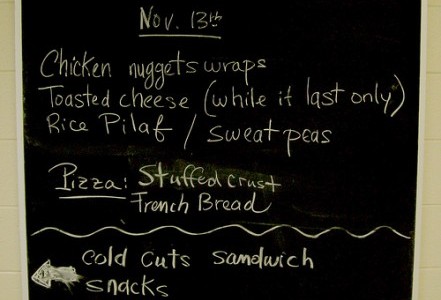 Nov. 13th
Chicken nuggets wraps
Toasted cheese (while it last only)
Rice Pilaf / sweat peas
Pizza: Stuffed crust
French Bread
cold cuts sandwich
snacks